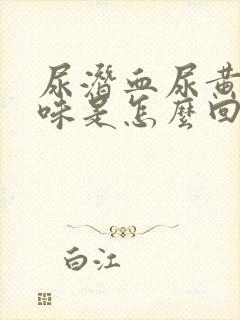 尿潛血尿黃
味是怎麼回
白江